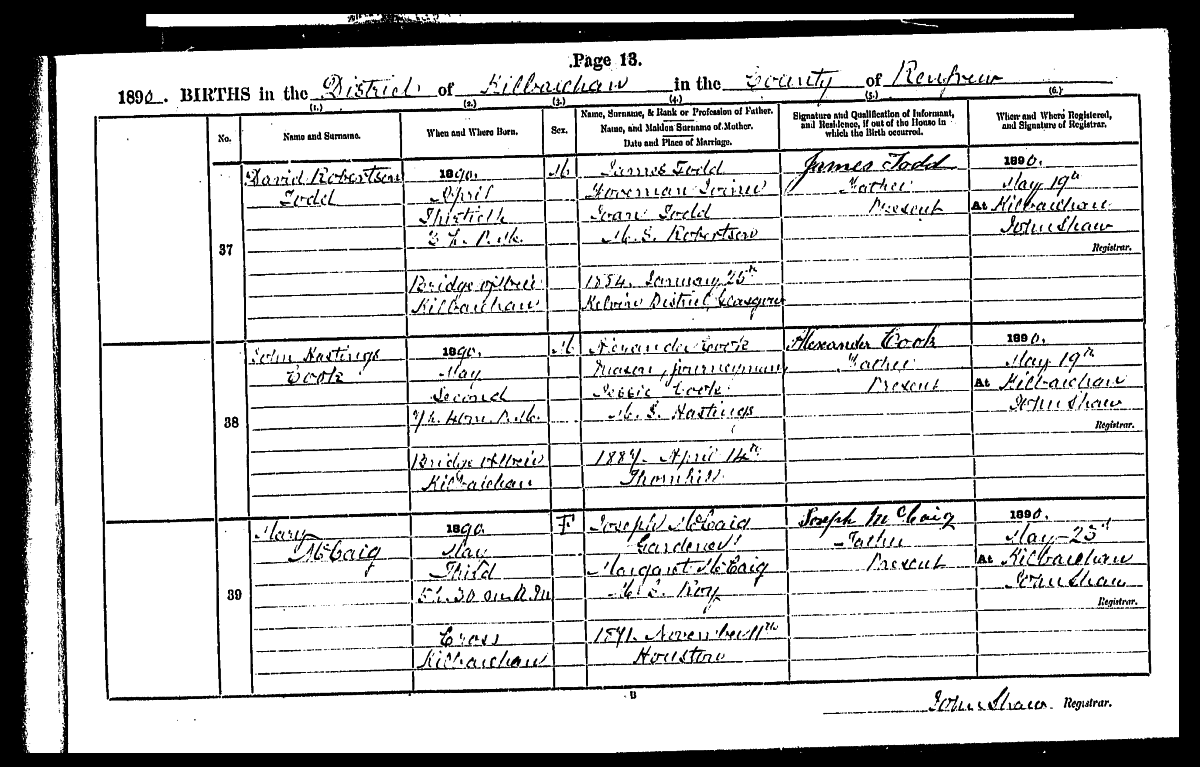 Page 13.
1890. BIRTHS in the District of Kilbarchan in the County of Renfrew
(1.) (2.) (3.) (4.) (5.) (6.)
No.
Name and Surname.
When and Where Born.
Sex.
Name, Surname, & Rank or Profession of Father.
Name, and Maiden Surname of Mother.
Date and Place of Marriage.
Signature and Qualification of Informant,
and Residence, if out of the House in
which the Birth occurred.
When and Where Registered,
and Signature of Registrar.
37
David Robertson
Todd
1890.
April
Thirtieth
P.M.
Bridge of Weir
Kilbarchan
M.
James Todd
Foreman Joiner
Joan Todd
M.S. Robertson
1884. January 25th
Kelvin District, Glasgow
James Todd
Father
Present
1890.
May 19th
At Kilbarchan
John Shaw
Registrar.
38
John Hastings
Cook
1890.
May
Second
P.M.
Bridge of Weir
Kilbarchan
M.
Alexander Cook
Mason, journeyman
Cook
M.S. Hastings
April 14th
Thornhill
Alexander Cook
Father
Present
1890.
May 19th
At Kilbarchan
John Shaw
Registrar.
39
Mary
McCaig
1890.
May
Third
5h. 30m A.M
Cross
Kilbarchan
F
Joseph McCaig
Gardener
Margaret McCaig
M.S. Roy
November 11th
Houston
Joseph McCaig
Father
Present
1890.
May 23d
At Kilbarchan
John Shaw
Registrar.
B
John Shaw. Registrar.